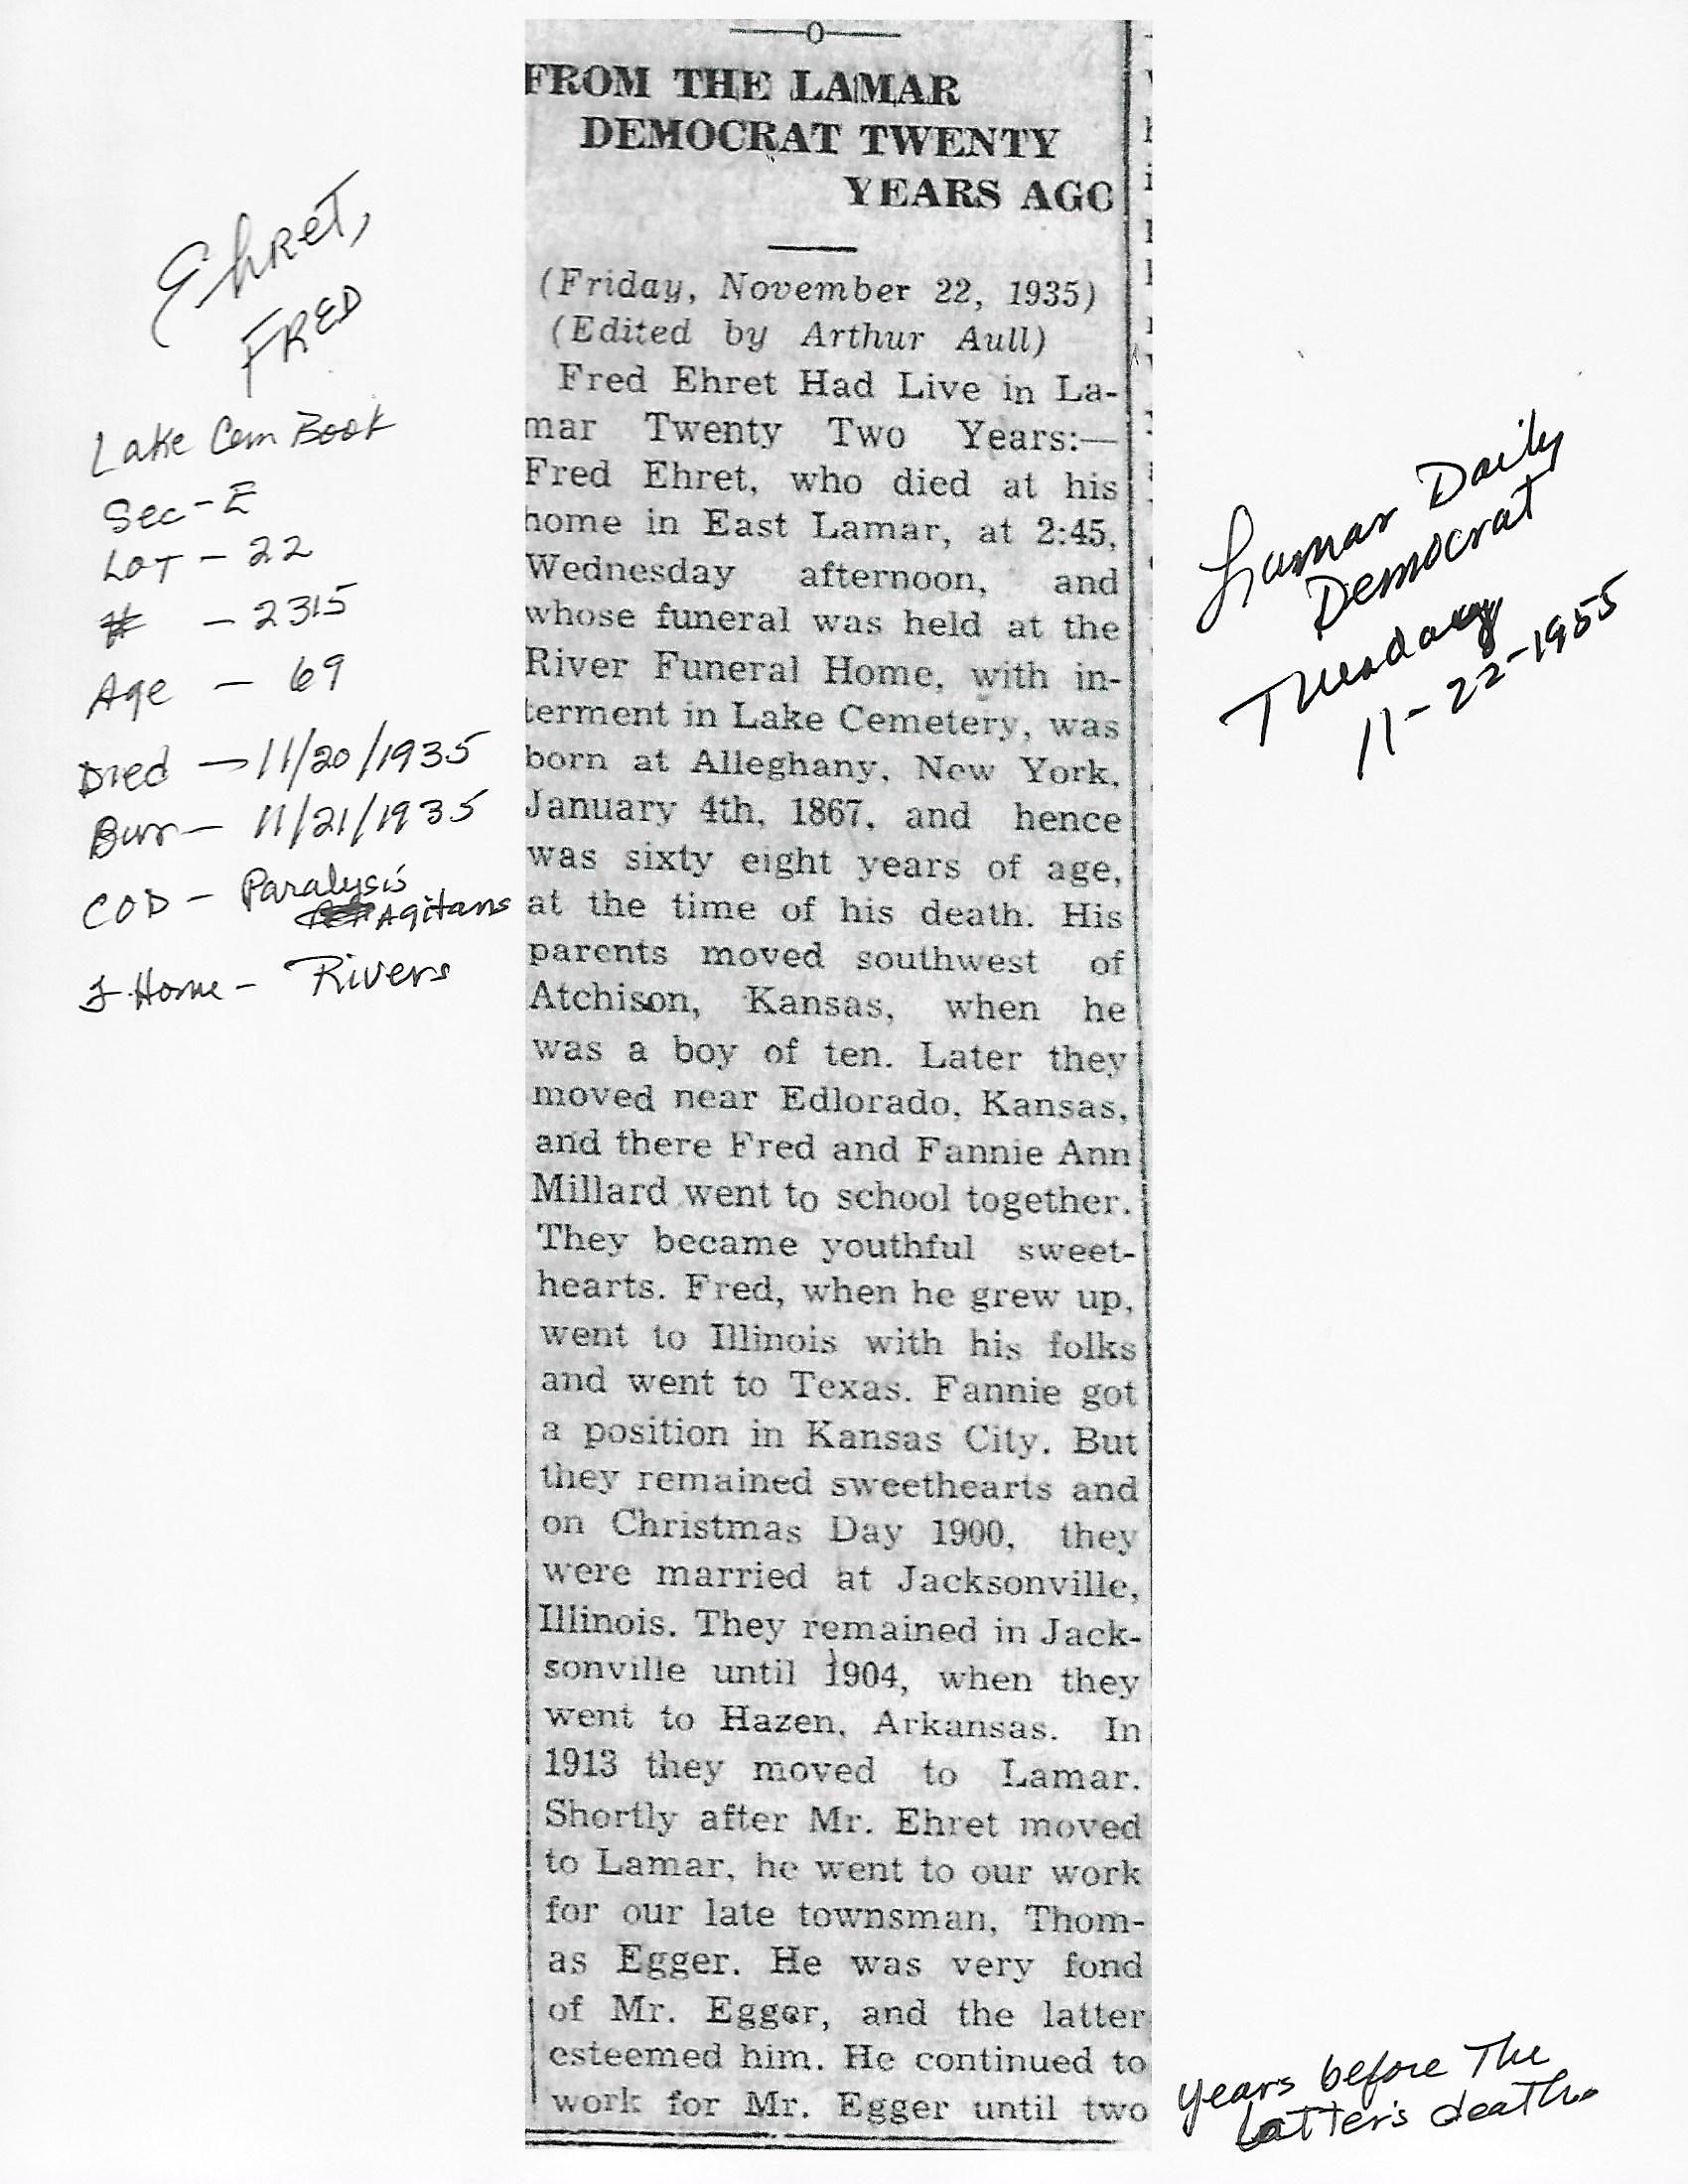 Ehret,
FRED
Lake Cem Book
Sec - E
LOT - 22
# - 2315
Age - 69
Died - 11/20/1935
Burr - 11/21/1935
COD - Paralysis
Agitans
F. Home - Rivers
FROM THE LAMAR
DEMOCRAT TWENTY
YEARS AGO
(Friday, November 22, 1935)
(Edited by Arthur Aull)
Fred Ehret Had Live in La-
mar Twenty Two Years:—
Fred Ehret, who died at his
home in East Lamar, at 2:45,
Wednesday afternoon, and
whose funeral was held at the
River Funeral Home, with in-
terment in Lake Cemetery, was
born at Alleghany, New York,
January 4th, 1867, and hence
was sixty eight years of age,
at the time of his death. His
parents moved southwest of
Atchison, Kansas, when he
was a boy of ten. Later they
moved near Edlorado, Kansas,
and there Fred and Fannie Ann
Millard went to school together.
They became youthful sweet-
hearts. Fred, when he grew up,
went to Illinois with his folks
and went to Texas. Fannie got
a position in Kansas City. But
they remained sweethearts and
on Christmas Day 1900, they
were married at Jacksonville,
Illinois. They remained in Jack-
sonville until 1904, when they
went to Hazen, Arkansas. In
1913 they moved to Lamar.
Shortly after Mr. Ehret moved
to Lamar, he went to our work
for our late townsman, Thom-
as Egger. He was very fond
of Mr. Egger, and the latter
esteemed him. He continued to
work for Mr. Egger until two
years before The
Latter's death.
Lamar Daily
Democrat
Tuesday
11-22-1955